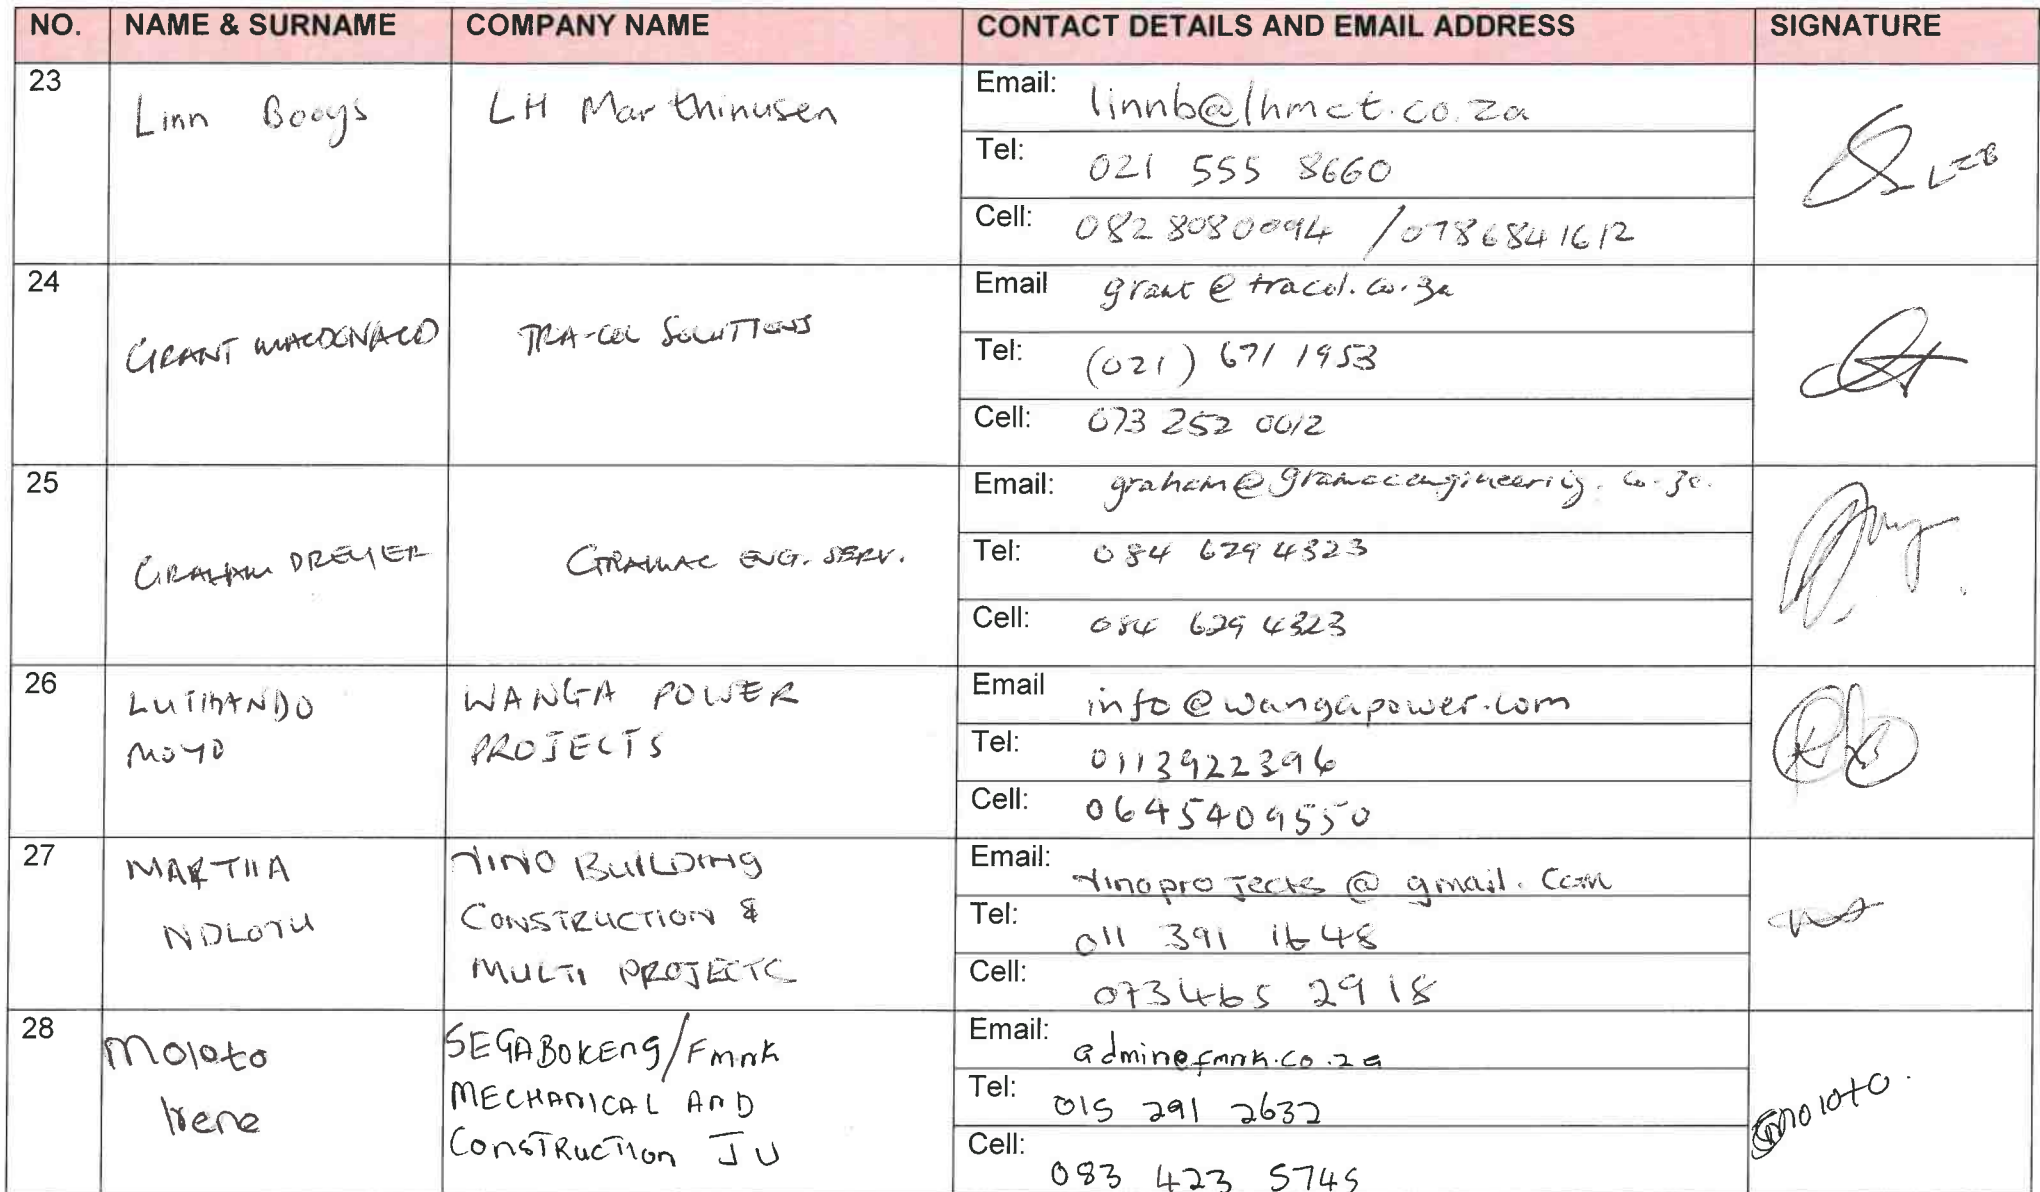 NO. NAME & SURNAME COMPANY NAME CONTACT DETAILS AND EMAIL ADDRESS SIGNATURE
23
Linn Booys
LH Marthinusen
Email: linnb@lhmct.co.za
Tel: 021 555 8660
Cell: 082 8080094 / 0786841612
24
GRANT MACDONALD
TRA-COL SOLUTIONS
Email grant@tracol.co.za
Tel: (021) 671 1953
Cell: 073 252 0012
25
GRAHAM DREYER
GRAMAC ENG. SERV.
Email: graham@gramacengineering.co.za
Tel: 084 629 4323
Cell: 084 629 4323
26
LUTHANDO
MOYO
WANGA POWER
PROJECTS
Email info@wangapower.com
Tel: 0113922396
Cell: 0645409550
27
MARTHA
NDLOVU
VINO BUILDING
CONSTRUCTION &
MULTI PROJECTS
Email: vinoprojects@gmail.com
Tel: 011 391 1648
Cell: 073465 2918
28
Moloto
Irene
SEGABOKENG/FMNK
MECHANICAL AND
CONSTRUCTION JV
Email: admin@fmnk.co.za
Tel: 015 291 2632
Cell: 083 423 5745
Moloto.